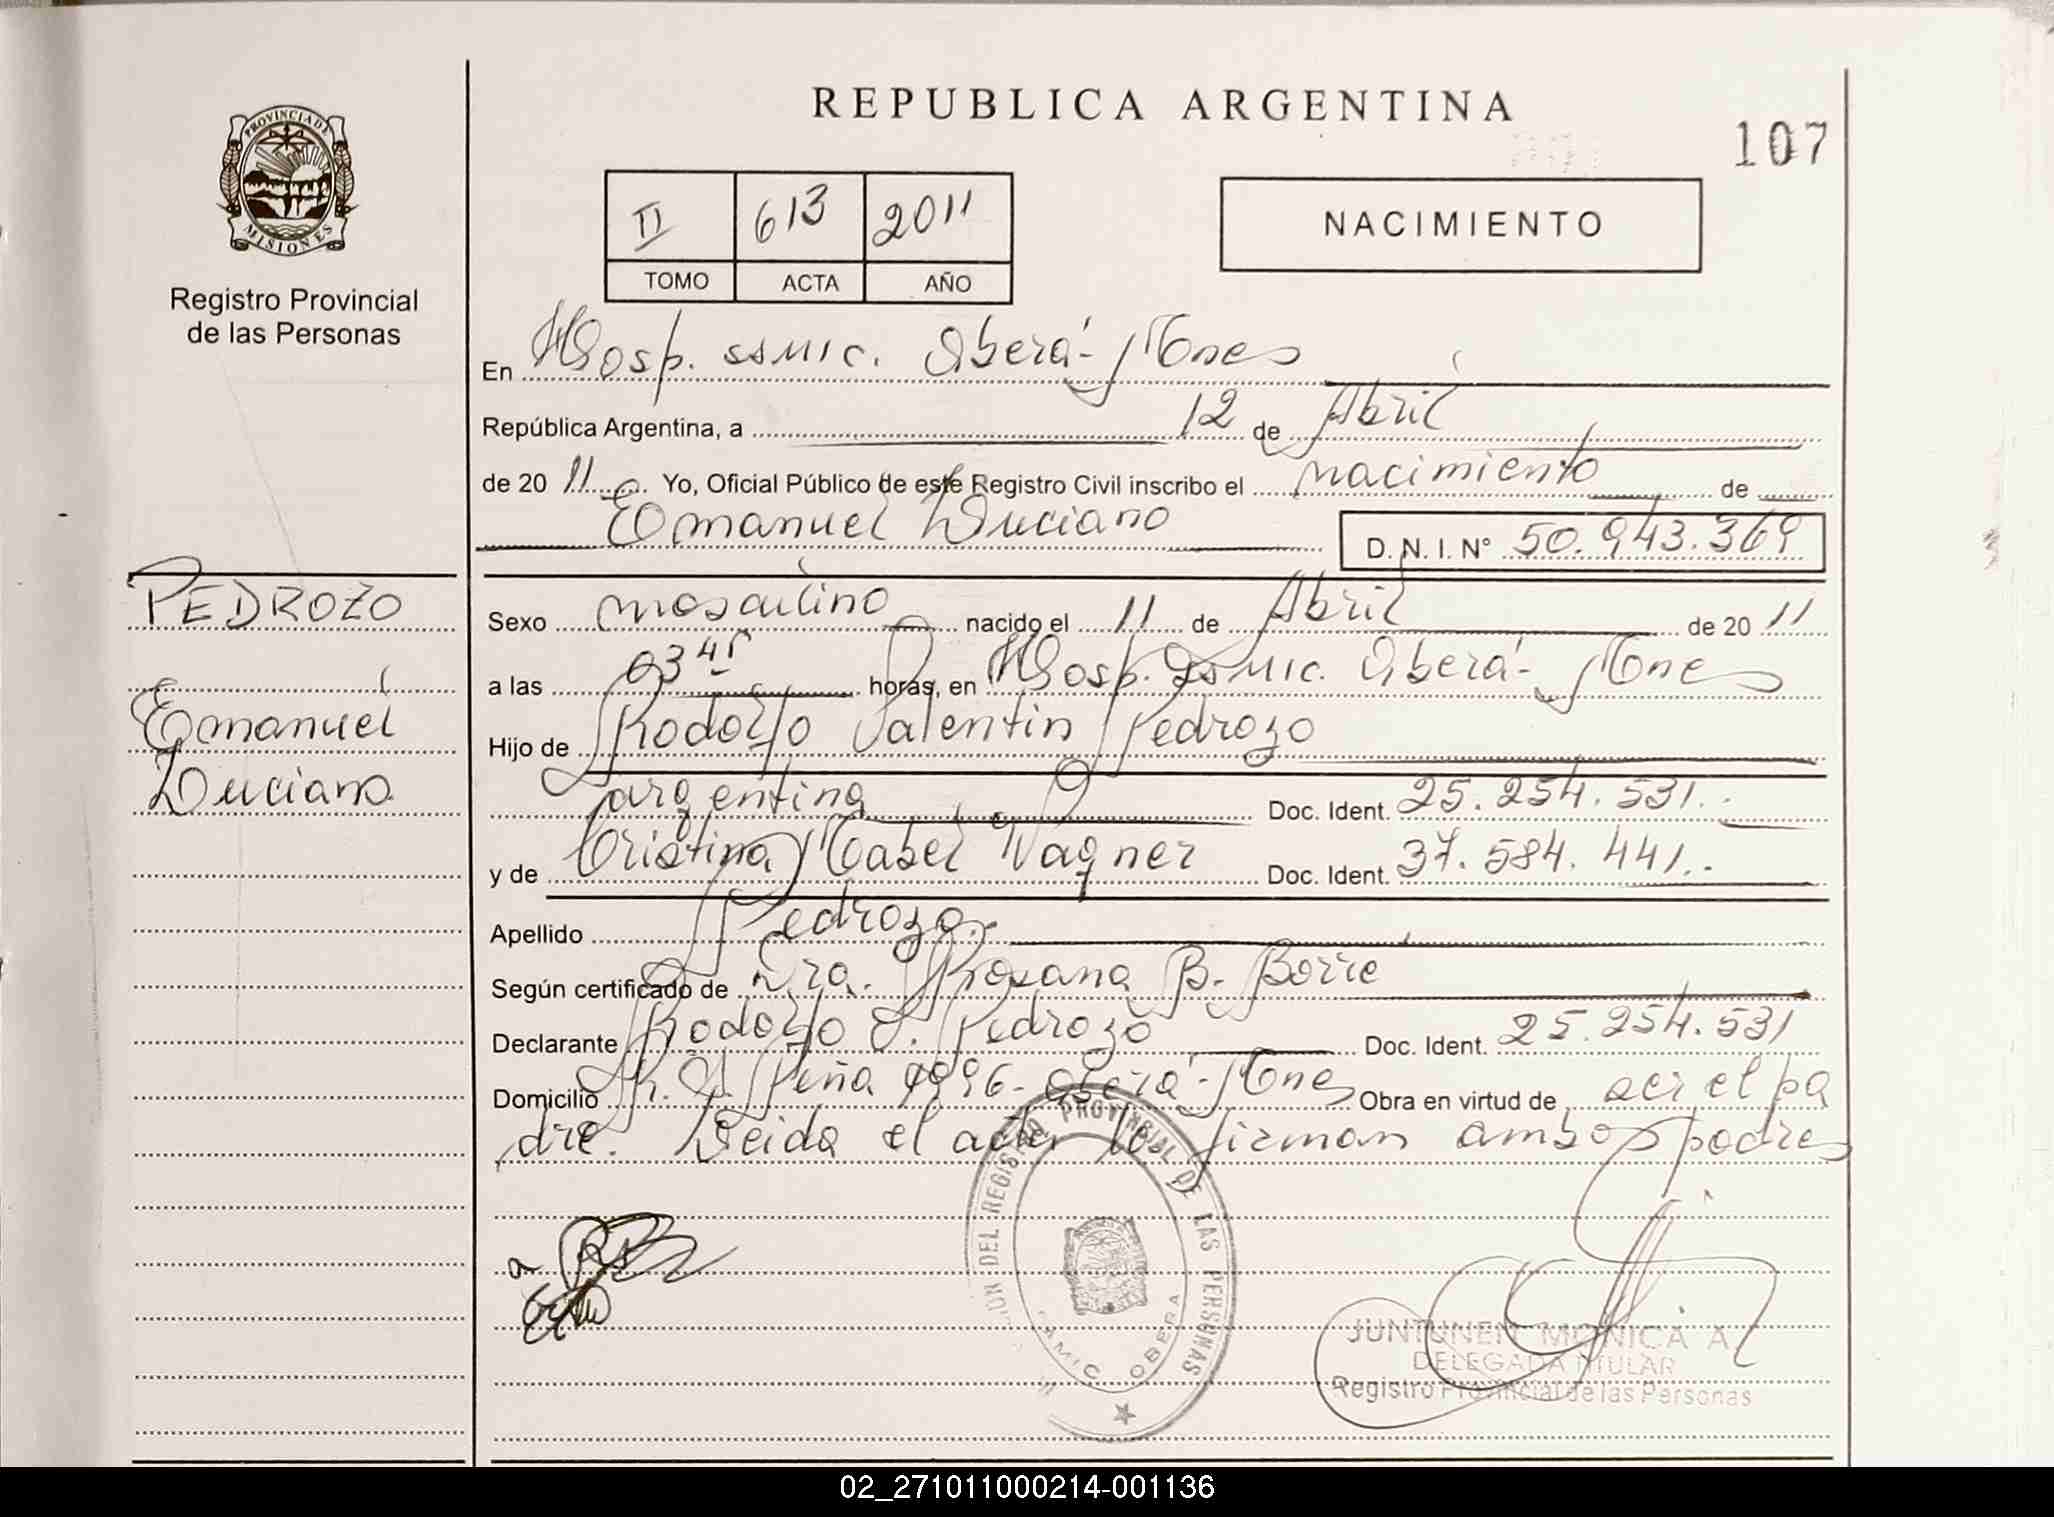 REPUBLICA ARGENTINA
107
PROVINCIA DE
MISIONES
Registro Provincial
de las Personas
II 613 2011
TOMO ACTA AÑO
NACIMIENTO
En Hosp. SSMIC. Oberá - Mnes
República Argentina, a 12 de Abril
de 2011 Yo, Oficial Público de este Registro Civil inscribo el nacimiento de
Emanuel Luciano D. N. I. N° 50.943.369
PEDROZO
Emanuel
Luciano
Sexo masculino nacido el 11 de Abril de 2011
a las 03 45 horas, en Hosp. SSMIC. Oberá - Mnes
Hijo de Rodolfo Valentin Pedrozo
argentina Doc. Ident. 25.254.531.-
y de Cristina Mabel Wagner Doc. Ident. 37.584.441.-
Apellido Pedrozo.-
Según certificado de Dra. Rosana B. Borre
Declarante Rodolfo V. Pedrozo Doc. Ident. 25.254.531
Domicilio R. S. Peña Oberá - Mnes Obra en virtud de ser el pa
dre. Leida el acta la firman ambos padres
PROVINCIAL DE LAS PERSONAS
DEL REGISTRO
SAMIC OBERA
JUNTUNEN MONICA A
DELEGADA TITULAR
Registro Provincial de las Personas
02_271011000214-001136